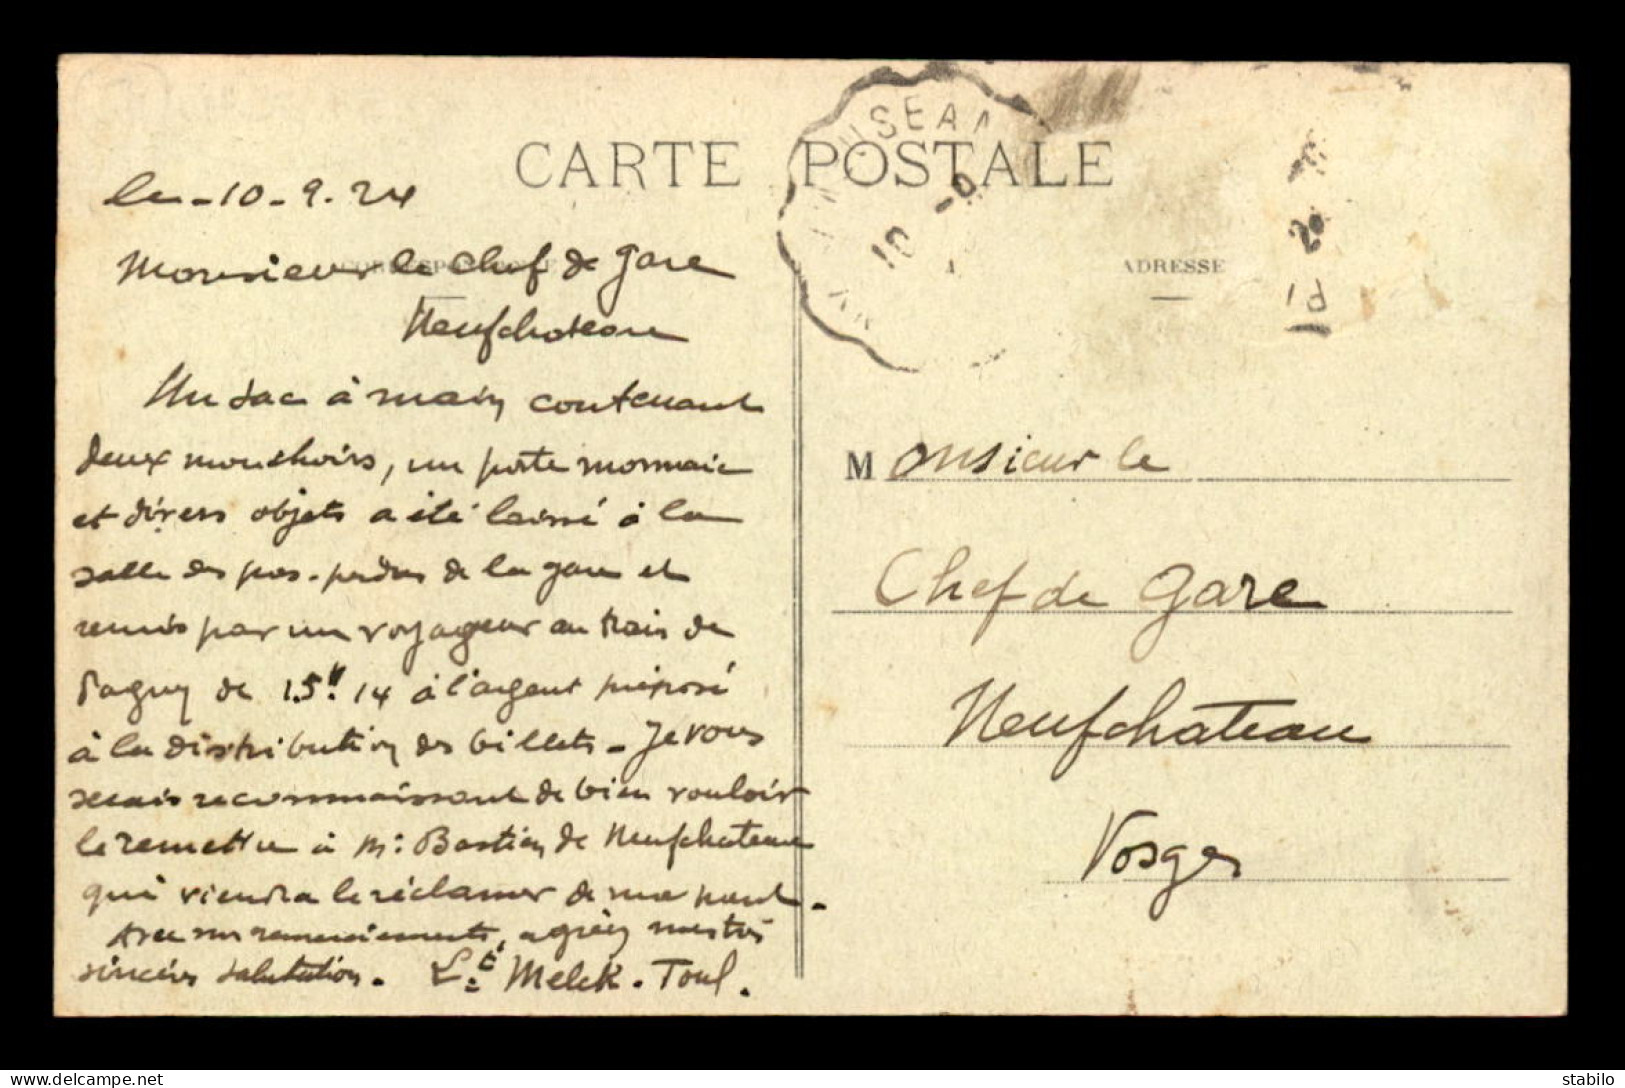 CARTE POSTALE
le 10-9-24
CORRESPONDANCE
Monsieur le Chef de Gare
Neufchateau
Un sac à main contenant
deux mouchoirs, un porte monnaie
et divers objets a été laissé à la
salle des pas-perdus de la gare et
remis par un voyageur au train de
Pagny de 15H 14 à l'agent préposé
à la distribution des billets - Je vous
serais reconnaissant de bien vouloir
le remettre à M: Bastien de Neufchateau
qui viendra le réclamer de ma part.
Avec mes remerciements, agréez mes très
sincères salutations. Lt Melck. Toul.
ADRESSE
Monsieur le
Chef de Gare
Neufchateau
Vosges
10 -9
stabilo